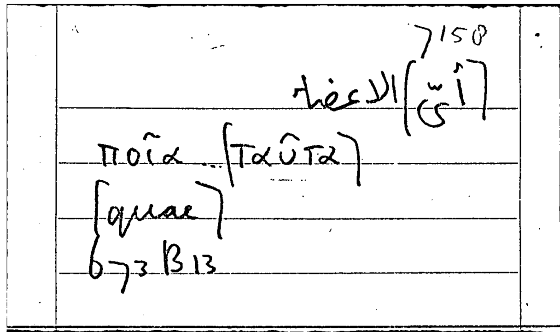 7158
[أيّ] الاعضاء
ποῖα ... [ταῦτα]
[quae]
673 B 13